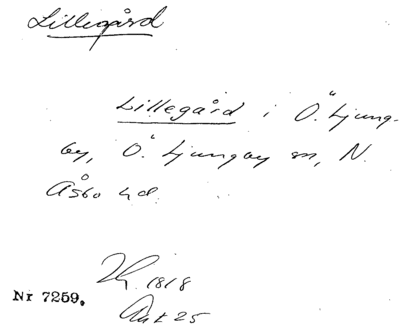 Lillegård
Lillegård i Ö. Ljung-
by, Ö. Ljungby sn, N.
Åsbo hd.
1818
Nr 7259.
Akt 25